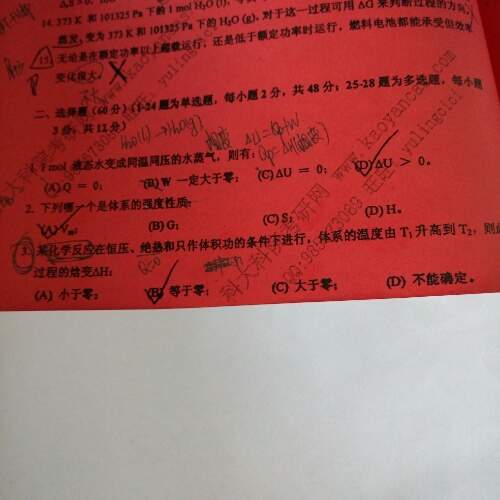 14. 373 K 和 101325 Pa 下的 1 mol H₂O (l),
蒸发, 变为 373 K 和 101325 Pa 下的 H₂O (g), 对于这一过程可用 ΔG 来判断过程的方向。
15. 无论是在额定功率以上超载运行，还是低于额定功率时运行，燃料电池都能承受但效率
变化很大。
X
二、选择题（60分）（1-24题为单选题，每小题2分，共48分；25-28题为多选题，每小题
3分，共12分）
H₂O(l)→H₂O(g)
ΔU=Q+W
1. 1 mol 液态水变成同温同压的水蒸气，则有：
(A) Q = 0； (B) W 一定大于零； (C) ΔU = 0； (D) ΔU > 0。
2. 下列哪一个是体系的强度性质：
(A) Vm； (B) G； (C) S； (D) H。
3. 某化学反应在恒压、绝热和只作体积功的条件下进行，体系的温度由 T₁ 升高到 T₂，则此
Q=0
过程的焓变ΔH：
(A) 小于零； (B) 等于零； (C) 大于零； (D) 不能确定。
科大科院考研网 www.kaoyancas.com